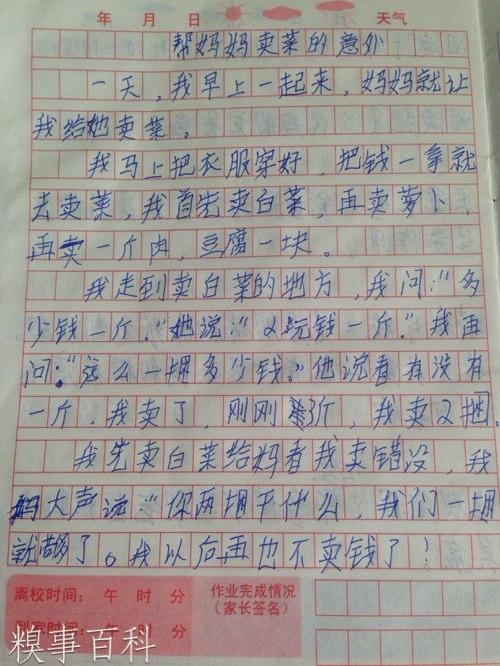 年 月 日 天气
帮妈妈卖菜的意外
一天,我早上一起来,妈妈就让
我给她卖菜。
我马上把衣服穿好,把钱一拿就
去卖菜,我首先卖白菜,再卖萝卜,
再卖一斤肉,豆腐一块。
我走到卖白菜的地方,我问:“多
少钱一斤。”她说:“2元钱一斤。”我再
问:“这么一捆多少钱。”他说看有没有
一斤,我卖了,刚刚3斤,我卖2捆。
我先卖白菜给妈看我卖错没,我
妈大声说:“你两捆干什么,我们一捆
就够了。我以后再也不卖钱了!
离校时间: 午 时 分 作业完成情况
到家时间: 午 时 分 (家长签名)
糗事百科